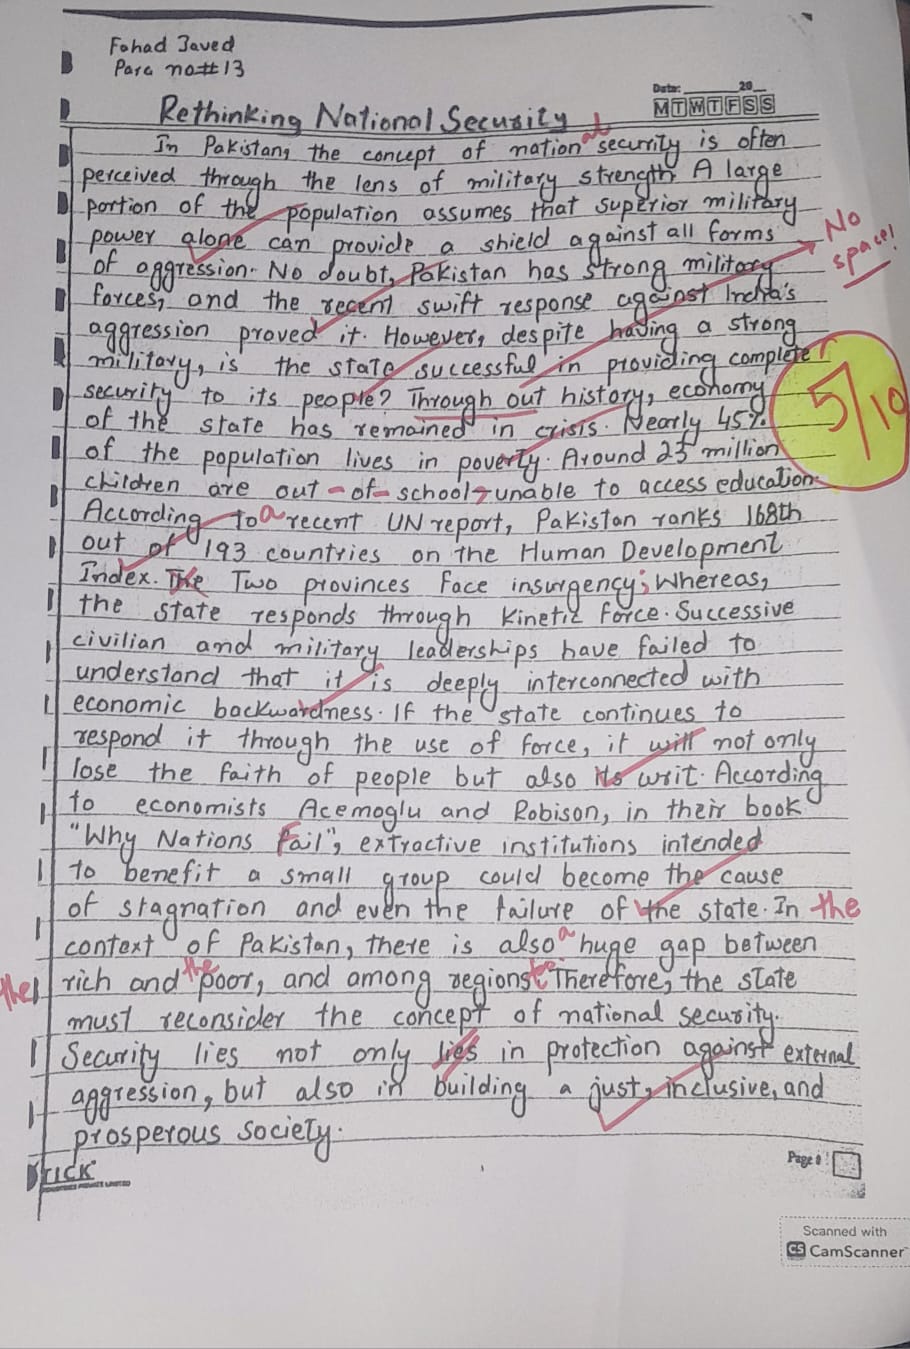 Fahad Javed
Para no# 13
Date: ______ 20__
M T W T F S S
Rethinking National Security
In Pakistan, the concept of national security is often
perceived through the lens of military strength. A large
portion of the population assumes that superior military
power alone can provide a shield against all forms
No
space!
of aggression. No doubt, Pakistan has strong military
forces, and the recent swift response against India's
aggression proved it. However, despite having a strong
military, is the state successful in providing complete
security to its people? Through out history, economy
5/10
of the state has remained in crisis. Nearly 45%
of the population lives in poverty. Around 25 million
children are out-of-school, unable to access education.
According to a recent UN report, Pakistan ranks 168th
out of 193 countries on the Human Development
Index. The Two provinces face insurgency; whereas,
the state responds through kinetic force. Successive
civilian and military leaderships have failed to
understand that it is deeply interconnected with
economic backwardness. If the state continues to
respond it through the use of force, it will not only
lose the faith of people but also its writ. According
to economists Acemoglu and Robison, in their book
"Why Nations Fail", extractive institutions intended
to benefit a small group could become the cause
of stagnation and even the failure of the state. In the
context of Pakistan, there is also a huge gap between
the rich and the poor, and among regions too. Therefore, the state
must reconsider the concept of national security.
Security lies not only lies in protection against external
aggression, but also in building a just, inclusive, and
prosperous society.
Page #
Scanned with
CS CamScanner